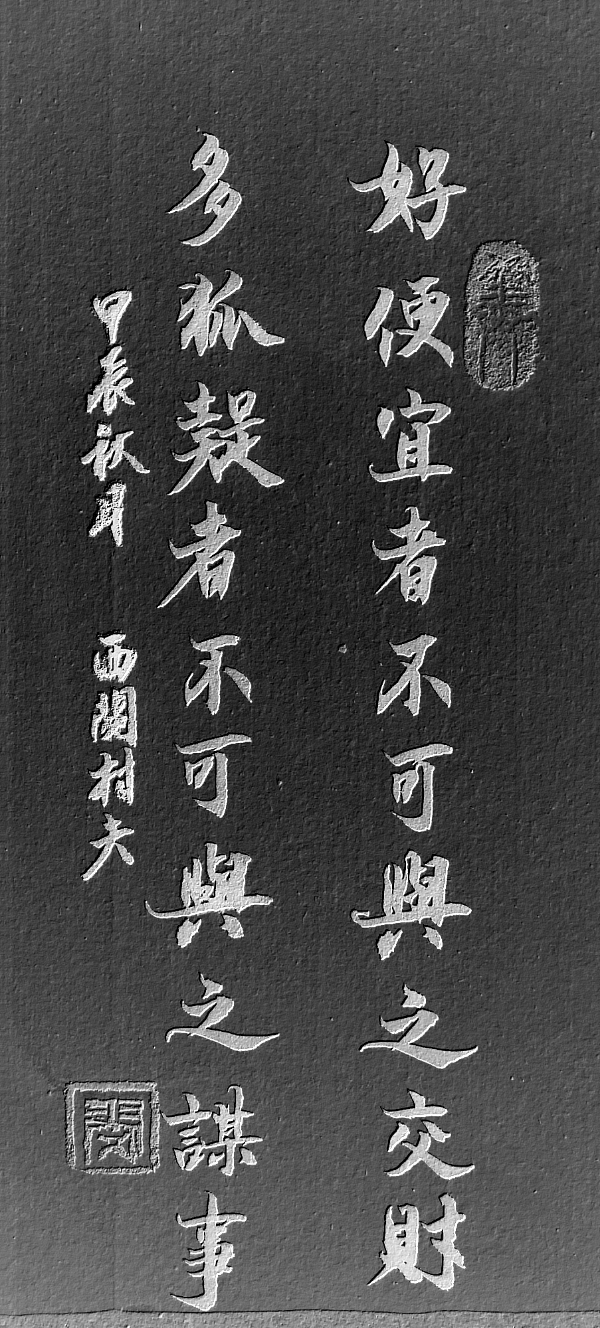 好便宜者不可與之交財
多狐疑者不可與之謀事
甲辰秋月 西閣村夫